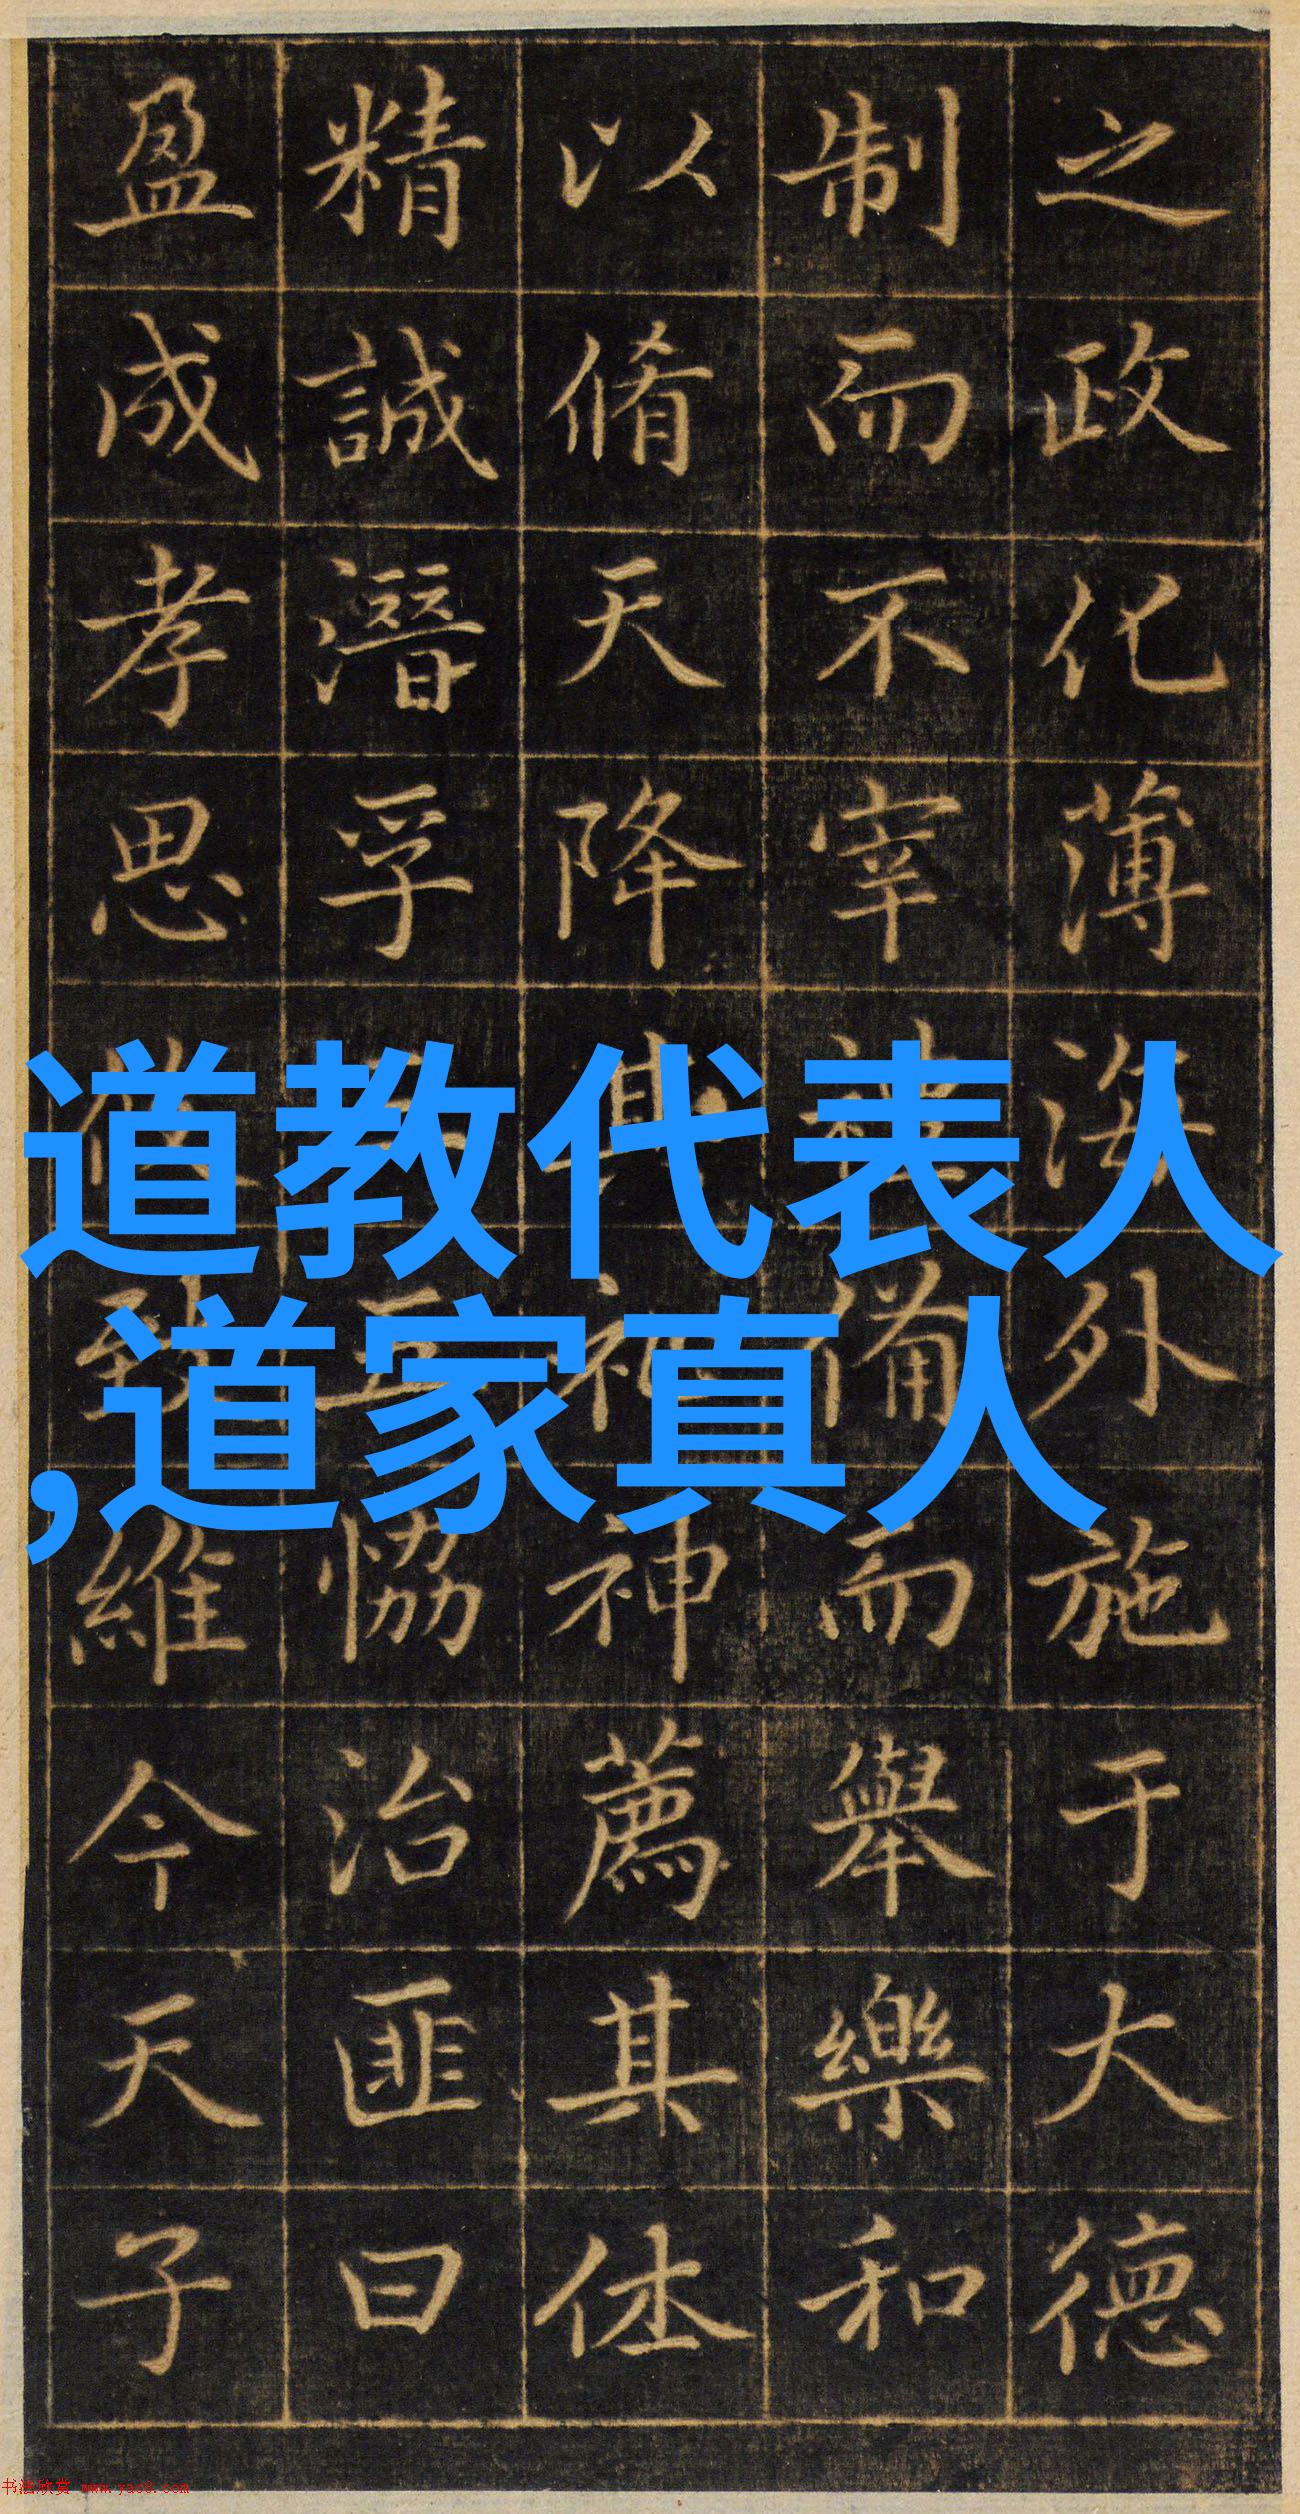 之政化薄海外施于大德
制而不宰備而舉樂和
以脩天降其神薦其休
精誠潛孚恊洽匪曰
盈成孝思維今天子
道教代表人
,道家真人
书法欣赏 www.yac8.com